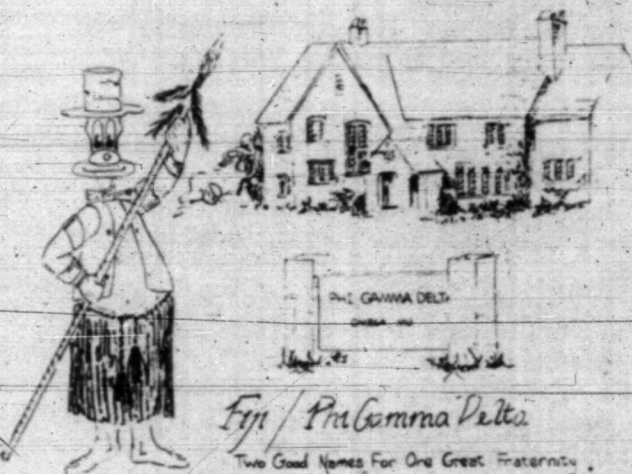 PHI GAMMA DELTA
OMEGA MU
Fiji / Phi Gamma Delta
Two Good Names For One Great Fraternity